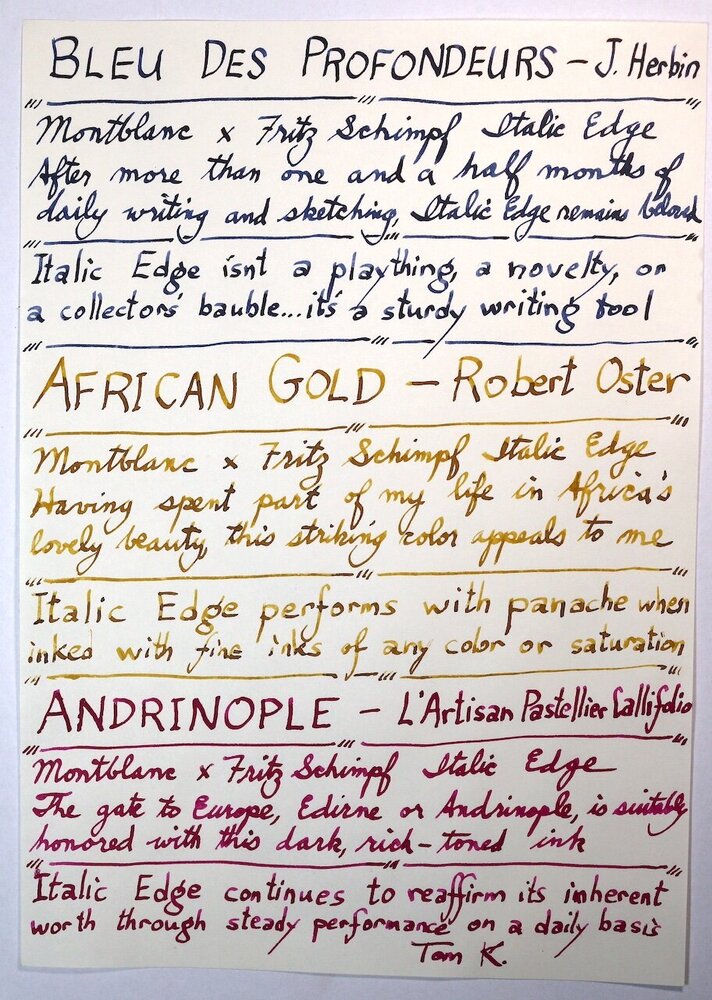 BLEU DES PROFONDEURS - J. Herbin
Montblanc x Fritz Schimpf Italic Edge
After more than one and a half months of
daily writing and sketching, Italic Edge remains beloved
Italic Edge isnt a plaything, a novelty, or
a collectors' bauble...it's a sturdy writing tool
AFRICAN GOLD - Robert Oster
Montblanc x Fritz Schimpf Italic Edge
Having spent part of my life in Africa's
lovely beauty, this striking color appeals to me
Italic Edge performs with panache when
inked with fine inks of any color or saturation
ANDRINOPLE - L'Artisan Pastellier Callifolio
Montblanc x Fritz Schimpf Italic Edge
The gate to Europe, Edirne or Andrinople, is suitably
honored with this dark, rich-toned ink
Italic Edge continues to reaffirm its inherent
worth through steady performance on a daily basis
Tom K.